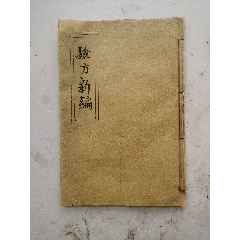 驗方新編